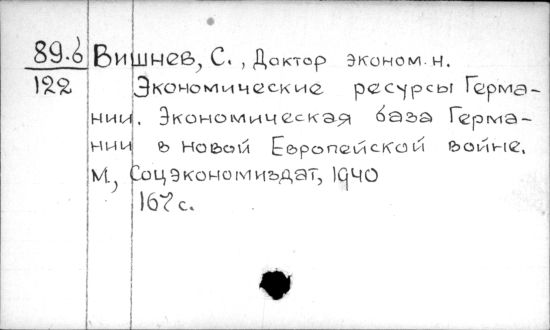 89.6 Вишнев, С., Доктор эконом. н.
122 Экономические ресурсы Герма-
нии. Экономическая база Герма-
нии в новой Европейской войне.
М, Соцэкономиздат, 1940
167 с.